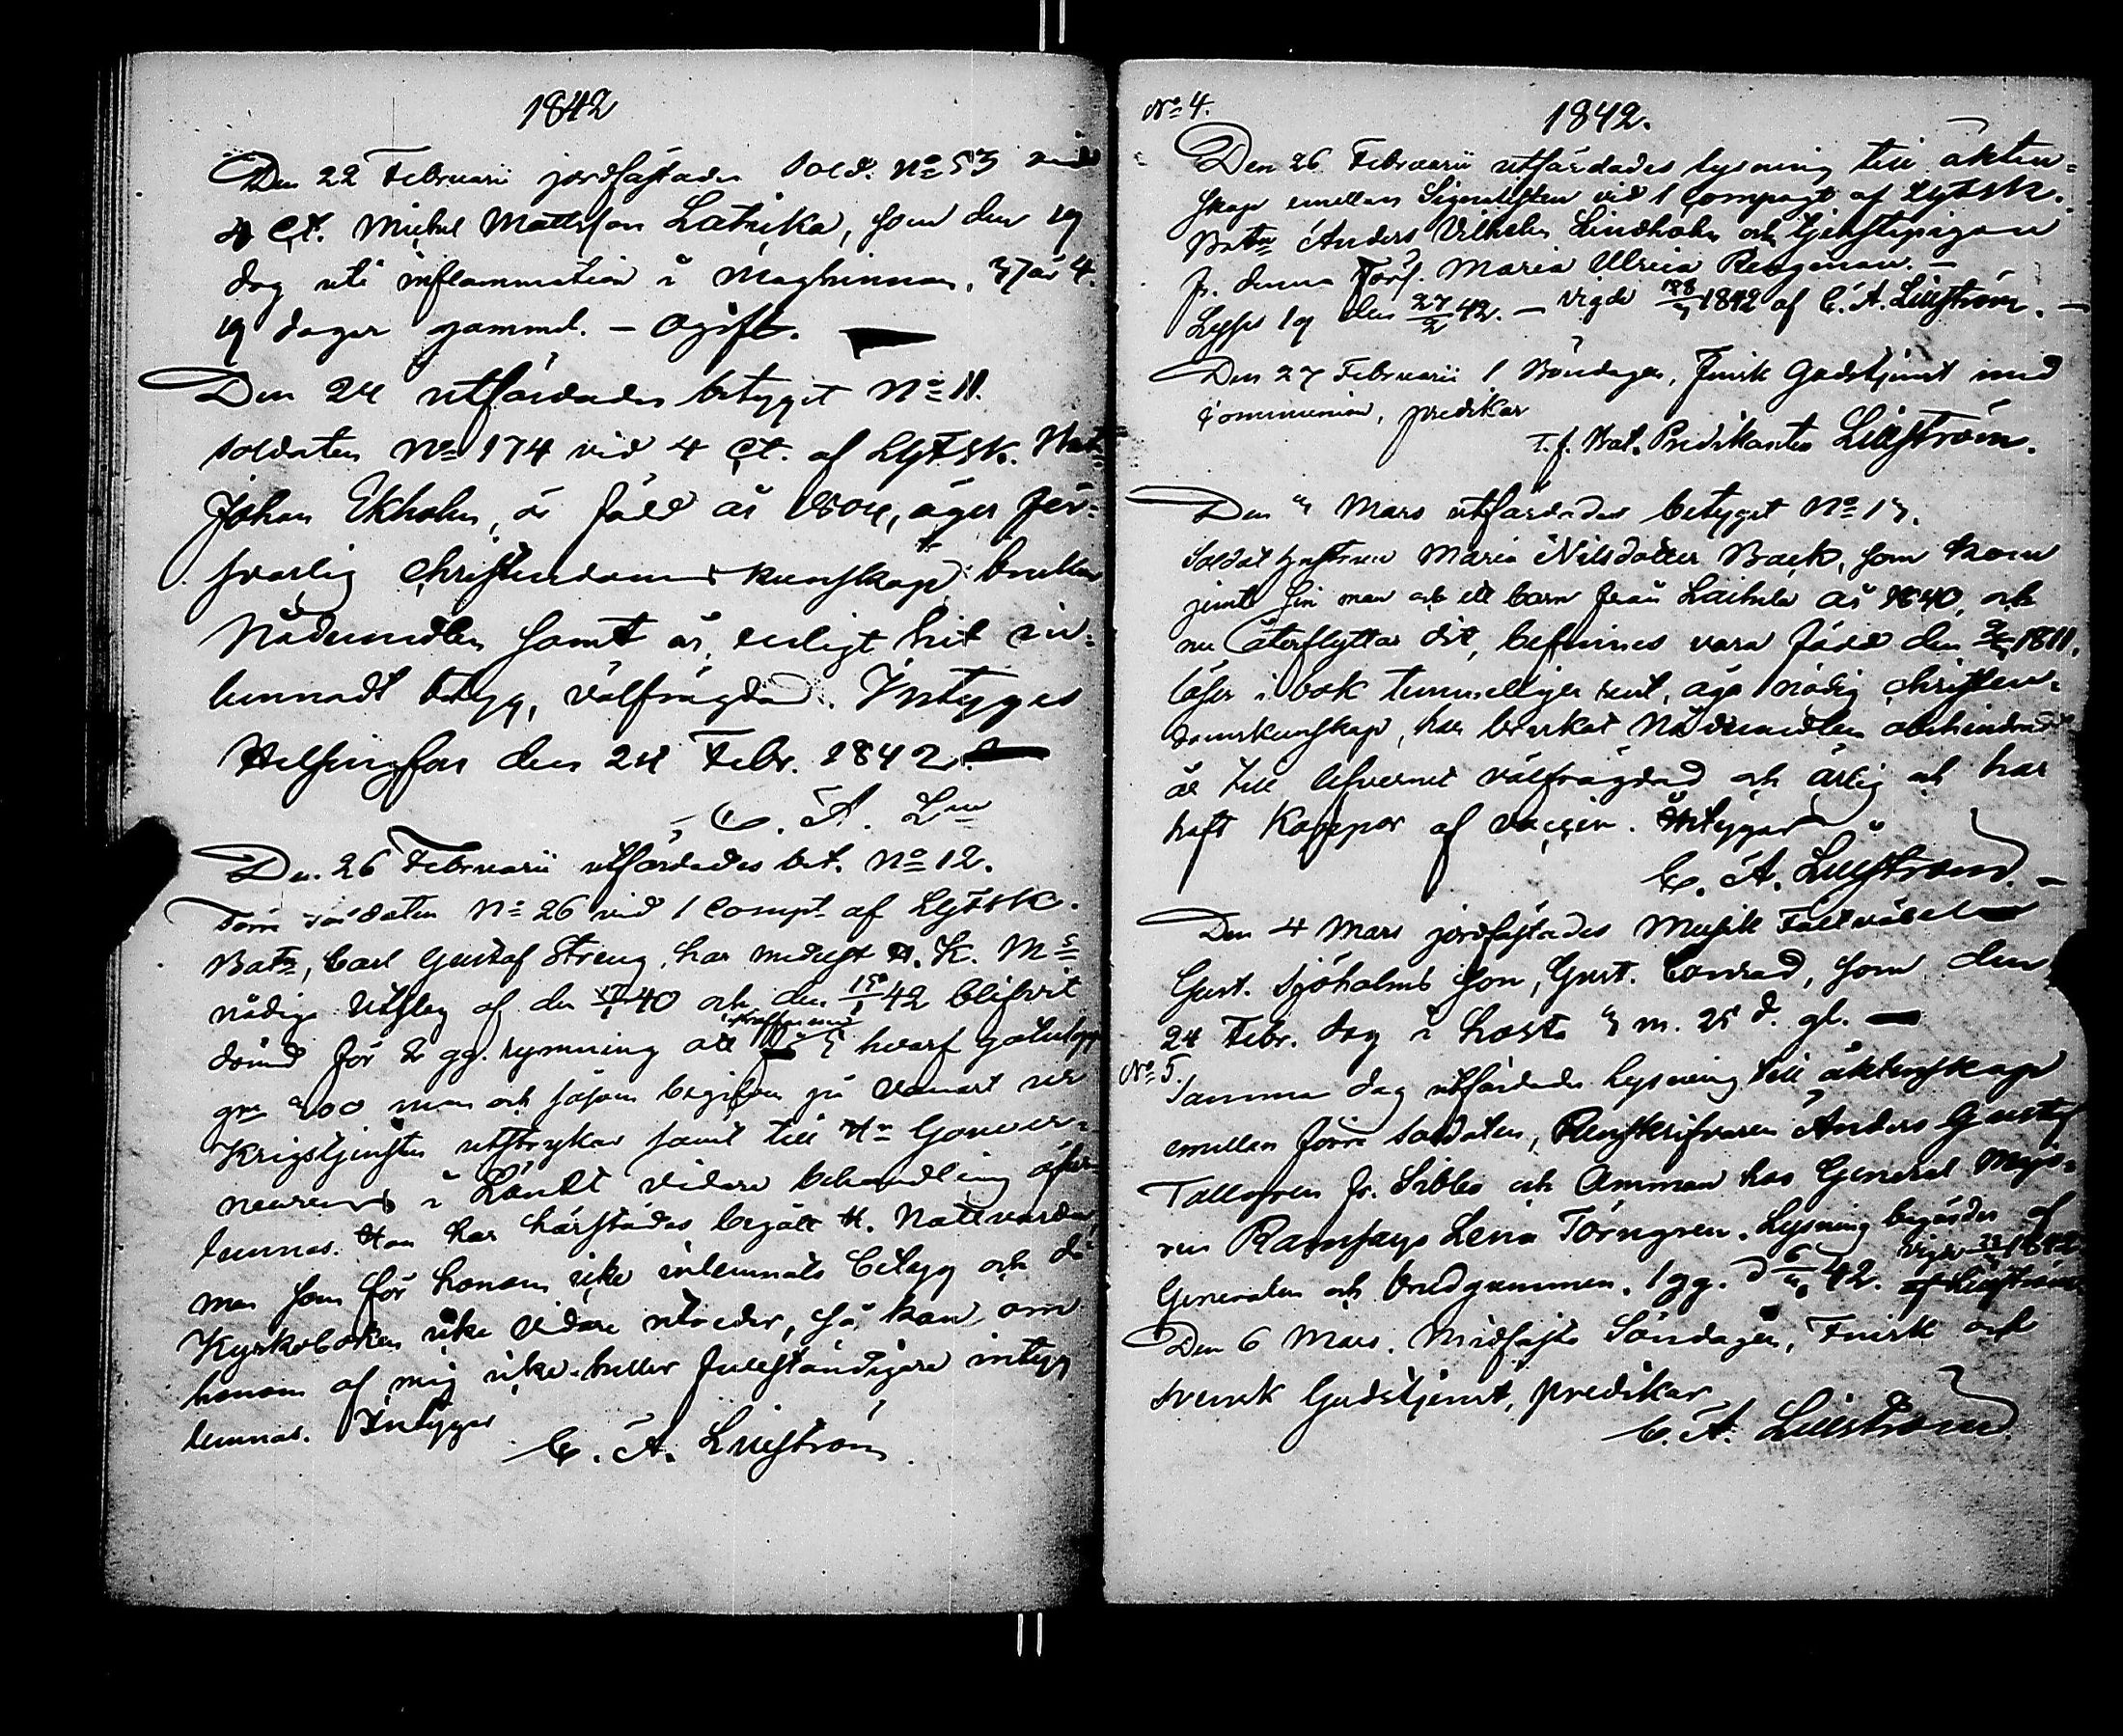 1842
Den 22 Februarii jordfästades Sold. No 53 med
4 Ct. Michel Mattsson Latrika, som den 19
dog uti inflammation i Maghinnan, 37 år 4.
19 dagar gammal. – Ogift.
Den 24 utfärdades betyget No 11.
Soldaten No 174 vid 4 Ct. af LgFSk. Bat.
Johan Ekholm, är född år 1804, äger för-
svarlig Christendomskunskap, brukar
Nådemedlen samt är, enligt hit in-
lemnadt betyg, välfrägdad. Intygas
Helsingfors den 24 Febr. 1842.
C. A. Lm
Den 26 Februarii utfärdades bet. No 12.
Förre Soldaten No 26 vid 1 Compt. af LgFSk.
Batn, Carl Gustaf Streng, har medelst H. K. Ms
nådiga Utslag af den 40 och den 15/1 42 blifvit
dömd för 2 gg. rymning att hvarf gatulopp
gm 200 man och såsom begifven på vanart ur
Krigstjensten utstrykas samt till Hn Gouver-
neurens i Länet vidare behandling öfver-
lemnas. Han har härstädes begått H. Nattvarden,
men som för honom icke inlemnats betyg och då
Kyrkoboken icke vidare utvisar, så kan om
honom af mig icke heller fullständigare intyg
lemnas. Intygar
C. A. Liljström
No 4.
1842.
Den 26 Februarii utfärdades lysning till äkten-
skap emellan Signalisten vid 1 Compagt af LgFSk.
Batn Anders Vilhelm Lindholm och tjenstepigan
fr. denna Förs. Maria Ulrica Bergman. –
Lyses 1g den 27/2 42. – Vigde 1842 af C. A. Liljström. –
Den 27 Februarii 1 Böndagen, Finsk Gudstjenst med
Communion, predikar
T. f. Bat. Predikanten Liljström.
Den 3 Mars utfärdades betyget No 13.
Soldat hustrun Maria Nilsdotter Back, som kom
jemte sin man och ett barn från Laihela år 1840, och
nu återflyttar dit, befinnes vara född den 1811,
läser i bok temmeligen rent, äga nödig christen-
domskunskap, har brukat Nådemedlen obehindradt
är till lefvernet välfrägdad och ärlig och har
haft Koppor af vaccin. Intygar
C. A. Liljström. –
Den 4 Mars jordfästades Musik Fältväbeln
Gust. Sjöholms son, Gust. Conrad, som den
24 Febr. dog i hosta 3 m. 25 d. gl. –
No 5.
Samma dag utfärdades lysning till äktenskap
emellan förre Soldaten, Renskrifvaren Anders Gustaf
Tallgren fr. Sibbo och Amman hos General Majo-
ren Ramsays Lena Törngren. Lysning begärdes af
Generalen och brudgummen. 1 gg. d 6/3 42. Vigde 1842
af Liljström
Den 6 Mars. Midfasto Söndagen, Finsk och
Svensk Gudstjenst, predikar
C. A. Liljström